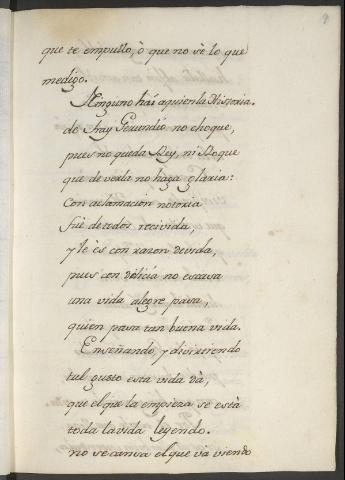 que te empullo, ò que no sè lo que
medigo.
Ninguno hai aquien la Historia
de Fray Gerundio no choque,
pues no queda Rey, ni Roque
que de verla no haga gloria:
Con aclamacion notoria
fuè de todos recivida,
y le ès con razon devida,
pues con delicia no escasa
una vida alegre pasa,
quien pasa tan buena vida.
Enseñando, y divirtiendo
tul gusto esta vida dà,
que el que la empieza se està
toda la vida leyendo.
no se cansa el que và viendo